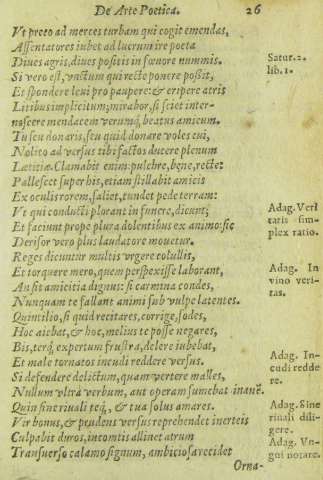 De Arte Poetica. 26
Vt preco ad merces turbam qui cogit emendas,
Assentatores iubet ad lucrum ire poeta
Diues agris, diues positis in fœnore nummis.
Satur. 2.
lib. 1.
Si vero est, vnctum qui recte ponere possit,
Et spondere leui pro paupere: & eripere atris
Litibus implicitum; mirabor, si sciet inter-
noscere mendacem verumq́; beatus amicum.
Tu seu donaris, seu quid donare voles cui,
Nolito ad versus tibi factos ducere plenum
Lætitiæ. Clamabit enim: pulchre, bene, recte:
Pallescet super his, etiam stillabit amicis
Ex oculis rorem, saliet, tundet pede terram:
Vt qui conducti plorant in funere, dicunt;
Et faciunt prope plura dolentibus ex animo: sic
Derisor vero plus laudatore mouetur.
Adag. Veri
tatis sim-
plex ratio.
Reges dicuntur multis vrgere culullis,
Et torquere mero, quem perspexisse laborant,
An sit amicitia dignus: si carmina condes,
Nunquam te fallant animi sub vulpe latentes.
Adag. In
vino veri-
tas.
Quintilio, si quid recitares, corrige, sodes,
Hoc aiebat, & hoc, melius te posse negares,
Bis, terq́; expertum frustra, delere iubebat,
Et male tornatos incudi reddere versus.
Adag. In-
cudi redde
re.
Si defendere delictum, quam vertere malles,
Nullum vltrà verbum, aut operam sumebat inanẽ.
Quin sine riuali teq́;, & tua solus amares.
Adag. Sine
riuali dili-
gere.
Vir bonus, & prudens versus reprehendet inerteis
Culpabit duros, incomtis allinet atrum
Transuerso calamo signum, ambiciosa recidet
Adag. Vn-
gui notare.
Orna-